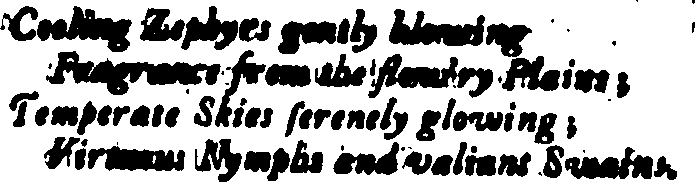 Cooling Zephyrs gently blowing
Fragrance from the flow'ry Plains;
Temperate Skies ſerenely glowing;
Virtuous Nymphs and valiant Swains.